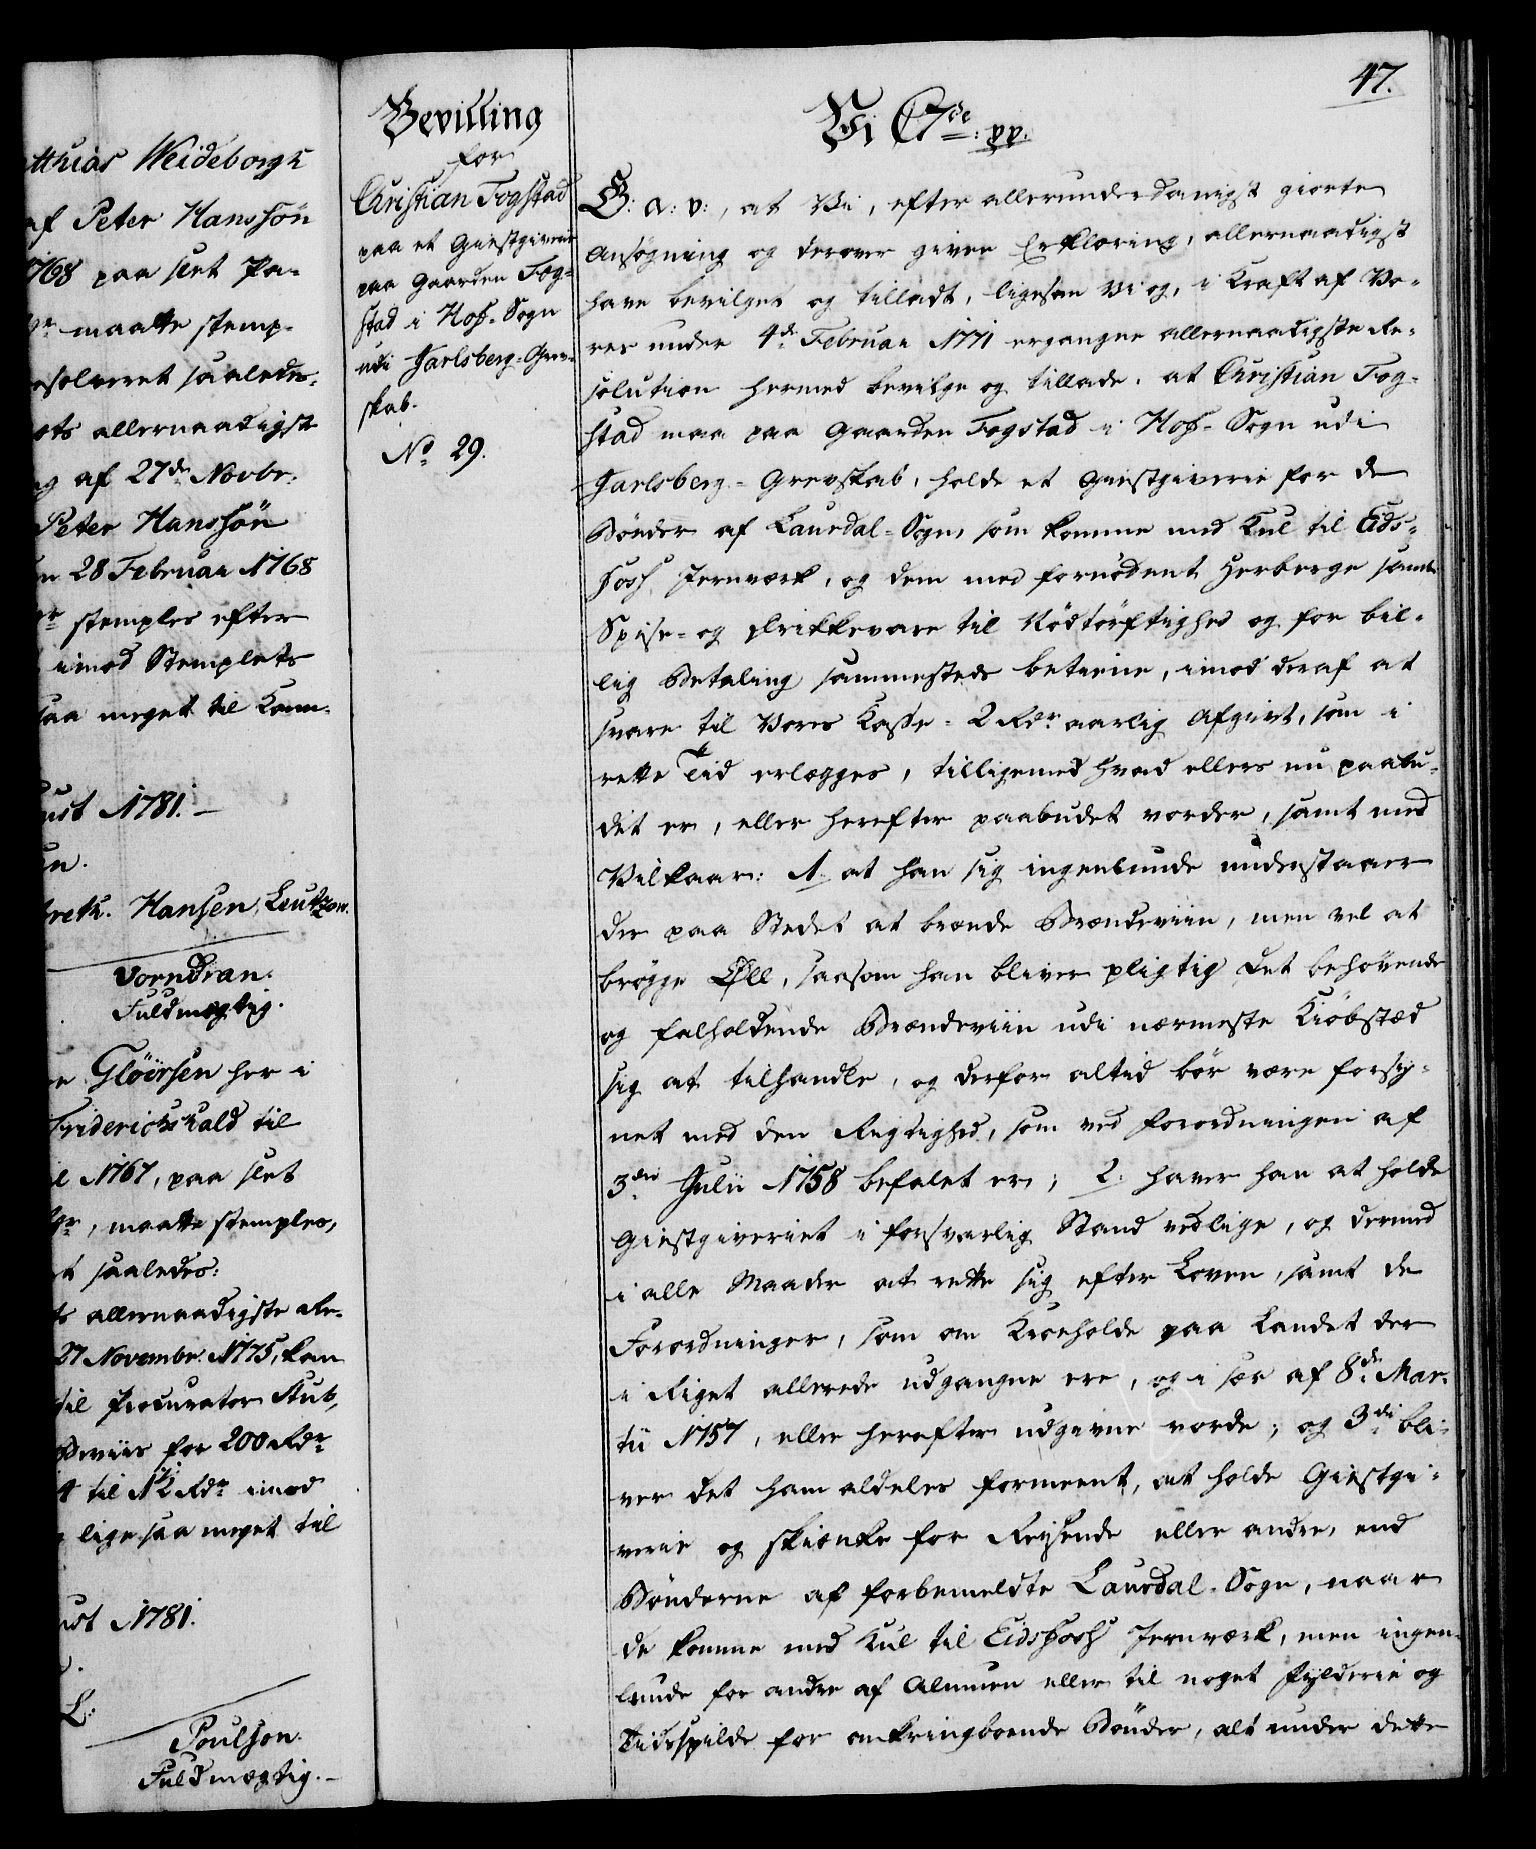 47.
tthias Weideborgh
af Peter Hanssön
1768 paa slet Pa-
maatte stemp-
esolveret saaledes.
ets allernaadigste
ng af 27de Novbr.
Peter Hanssön
en 28 Februari 1768
stemples efter
imod Stemplets
saa meget til Kam-
ust 1781.-
un.
Hansen, Leutzow.
Vorndran.
Fuldmægtig.
Glöërsen her i
Friderichshald til
il 1767, paa slet
maatte stemples,
t saaledes:
ts allernaadigste Re-
27 Novembr. 1775, kan
til Procurator Stub,
Beviis for 200 Rdr
4 til 12 Rdr imod
lige saa meget til
ust 1781.
L:
Poulson.
Fuldmægtig.-
Bevilling
for
Christian Fogstad
paa et Giestgiverie
paa Gaarden Fog-
stad i Hof-Sogn
udi Jarlsberg-Grev-
skab.
No 29.
Vi C7de: pp:
G: a: v:, at Vi, efter allerunderdanigst giorte
Ansøgning og derover given Erklæring, allernaadigst
have bevilget og tilladt, ligesom Vi og, i Kraft af Vo-
res under 4de Februari 1771 ergangne allernaadigste Re-
solution hermed bevilge og tillade, at Christian Fog-
stad maa paa Gaarden Fogstad i Hof-Sogn udi
Jarlsberg-Grevskab, holde et Giestgiverie for de
Bönder af Laurdal-Sogn, som komme med Kul til Eids-
foss Jernværk, og dem med fornödent Herberge samt
Spise- og Drikkevare til Nödtörftighed og for bil-
lig Betaling sammesteds betiene, imod deraf at
svare til Vores Kasse 2 Rdr aarlig Afgivt, som i
rette Tid erlægges, tilligemed hvad ellers nu paabu-
det er, eller herefter paabudet vorder, samt med
Vilkaar: 1. at han sig ingenlunde understaaer
der paa Stedet at brænde Brændeviin, men vel at
brögge Öll, saasom han bliver pligtig det behövende
og falholdende Brændeviin udi nærmeste Kiöbstæd
sig at tilhandle, og derfor altid bör være forsy-
net med den Rigtighed, som ved Forordningen af
3die Julii 1758 befalet er; 2. haver han at holde
Giestgiveriet i forsvarlig Stand vedlige, og dermed
i alle Maader at rette sig efter Loven, samt de
Forordninger, som om Kroehold paa Landet der
i Riget allerede udgangne ere, og i sær af 8de Mar-
tii 1757, eller herefter udgivne vorde; og 3di bli-
ver det ham aldeles formeent, at holde Giestgi-
verie og skienke for Reysende eller andre, end
Bönderne af forbemeldte Laurdal-Sogn, naar
de komme med Kul til Eidsfoss Jernværk, men ingen-
lunde for andre af Almuen eller til noget Fylderie og
Tidsspilde for omkringboende Bönder, alt under dette